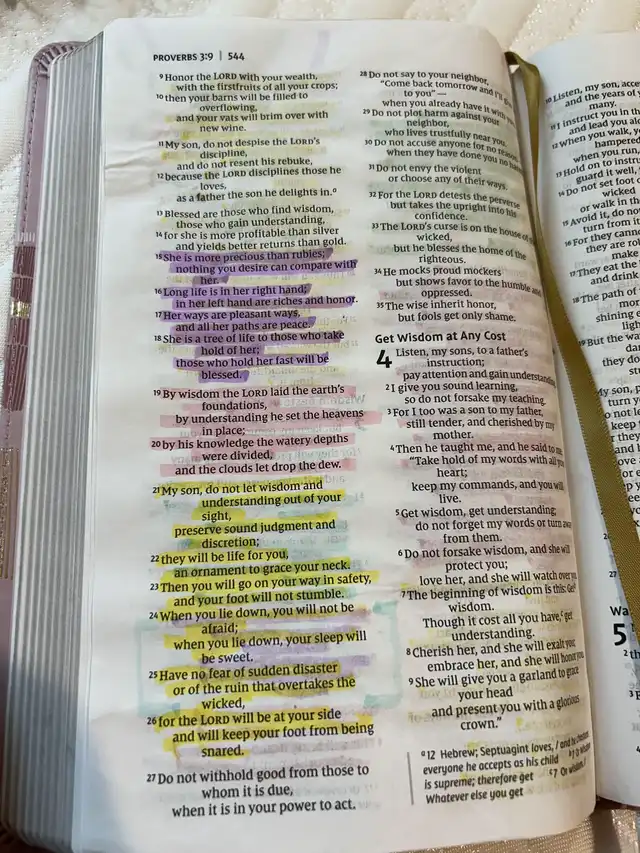 PROVERBS 3:9 | 544
9 Honor the LORD with your wealth,
with the firstfruits of all your crops;
10 then your barns will be filled to
overflowing,
and your vats will brim over with
new wine.
11 My son, do not despise the LORD's
discipline,
and do not resent his rebuke,
12 because the LORD disciplines those he
loves,
as a father the son he delights in.a
13 Blessed are those who find wisdom,
those who gain understanding,
14 for she is more profitable than silver
and yields better returns than gold.
15 She is more precious than rubies;
nothing you desire can compare with
her.
16 Long life is in her right hand;
in her left hand are riches and honor.
17 Her ways are pleasant ways,
and all her paths are peace.
18 She is a tree of life to those who take
hold of her;
those who hold her fast will be
blessed.
19 By wisdom the LORD laid the earth's
foundations,
by understanding he set the heavens
in place;
20 by his knowledge the watery depths
were divided,
and the clouds let drop the dew.
21 My son, do not let wisdom and
understanding out of your
sight,
preserve sound judgment and
discretion;
22 they will be life for you,
an ornament to grace your neck.
23 Then you will go on your way in safety,
and your foot will not stumble.
24 When you lie down, you will not be
afraid;
when you lie down, your sleep will
be sweet.
25 Have no fear of sudden disaster
or of the ruin that overtakes the
wicked,
26 for the LORD will be at your side
and will keep your foot from being
snared.
27 Do not withhold good from those to
whom it is due,
when it is in your power to act.
28 Do not say to your neighbor,
"Come back tomorrow and I'll give
to you" —
when you already have it with you.
29 Do not plot harm against your
neighbor,
who lives trustfully near you.
30 Do not accuse anyone for no reason
when they have done you no
31 Do not envy the violent
or choose any of their ways.
32 For the LORD detests the perverse
but takes the upright into his
confidence.
33 The LORD's curse is on the house of
wicked,
but he blesses the home of the
righteous.
34 He mocks proud mockers
but shows favor to the humble and
oppressed.
35 The wise inherit honor,
but fools get only shame.
Get Wisdom at Any Cost
4 Listen, my sons, to a father's
instruction;
pay attention and gain understanding
2 I give you sound learning,
so do not forsake my teaching.
3 For I too was a son to my father,
still tender, and cherished by my
mother.
4 Then he taught me, and he said to me,
"Take hold of my words with all your
heart;
keep my commands, and you will
live.
5 Get wisdom, get understanding;
do not forget my words or turn away
from them.
6 Do not forsake wisdom, and she will
protect you;
love her, and she will watch over you.
7 The beginning of wisdom is this: Get
wisdom.
Though it cost all you have,c get
understanding.
8 Cherish her, and she will exalt you;
embrace her, and she will honor you
9 She will give you a garland to grace
your head
and present you with a glorious
crown."
a 12 Hebrew; Septuagint loves, / and he chastens
everyone he accepts as his child
is supreme; therefore get c 7 Or wisdom. /
Whatever else you get
10 Listen, my son, acce
and the years of y
many.
11 I instruct you in th
and lead you alo
12 When you walk, y
hampered
when you run,
13 Hold on to instru
guard it well,
14 Do not set foot o
wicked
or walk in th
15 Avoid it, do no
turn from it
16 For they canno
they are ro
make
17 They eat the
and drink
18 The path
shining
19 But the wa
5